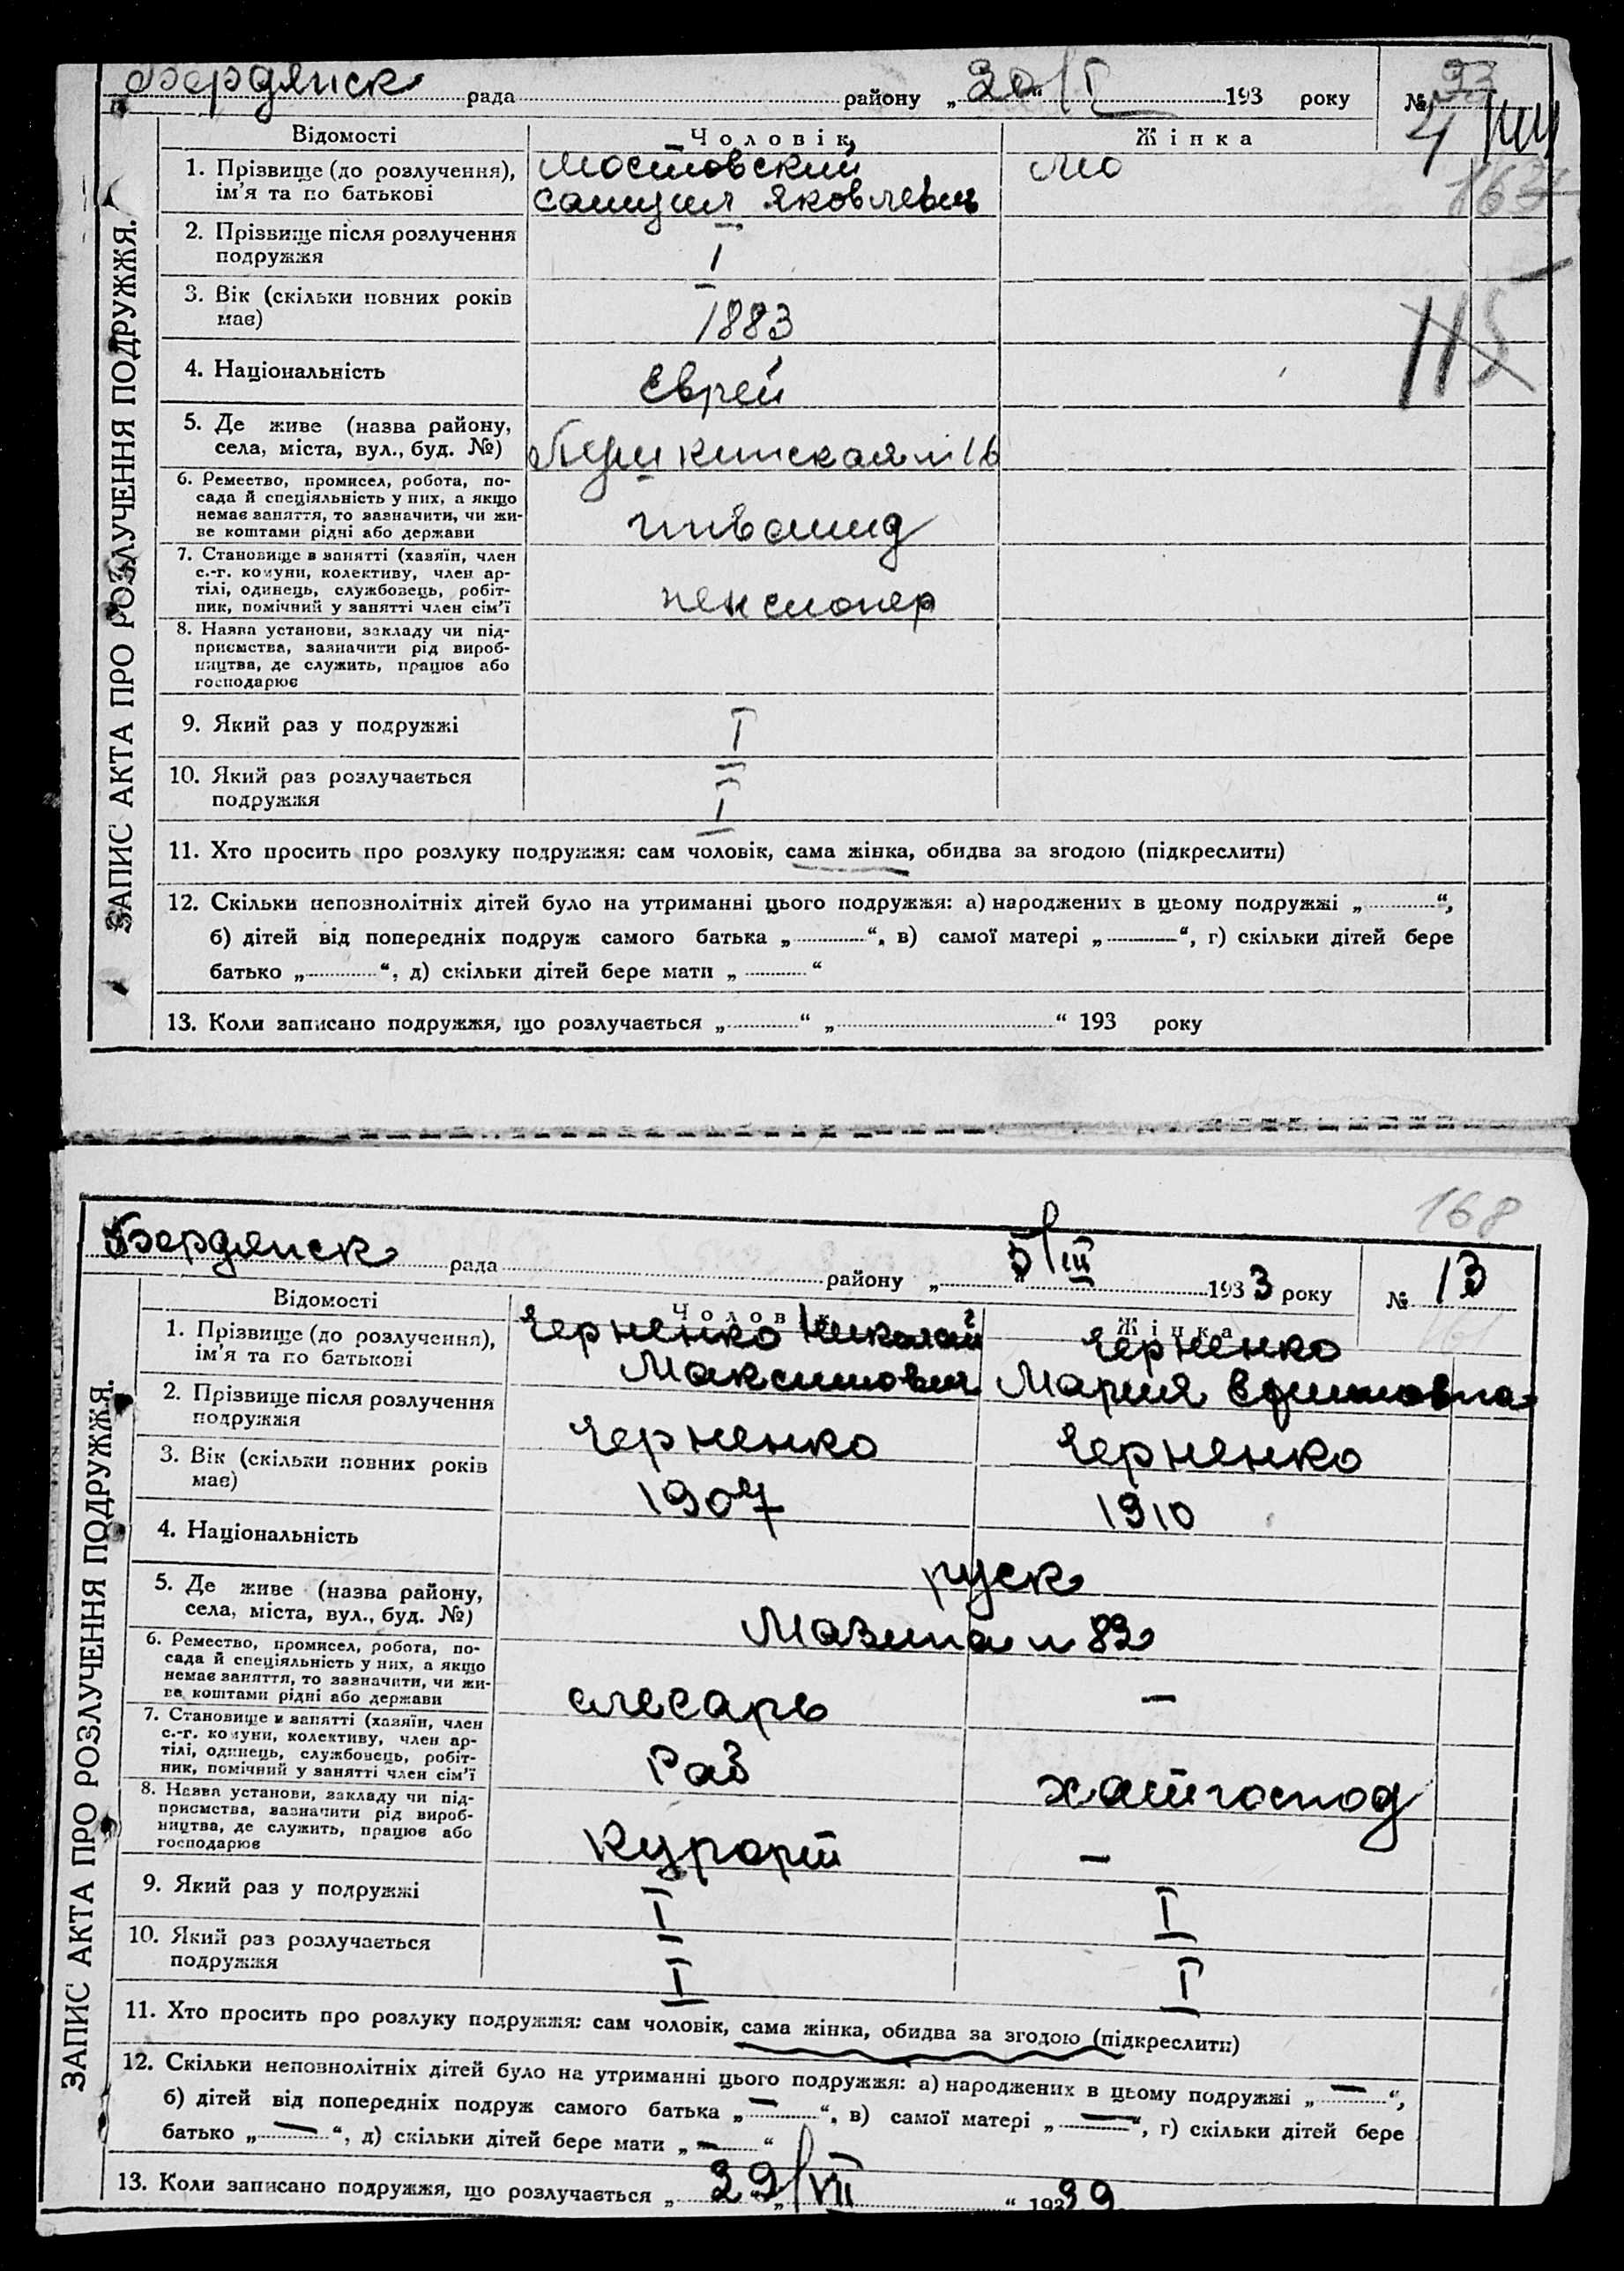 Бердянск рада району „ 20/I 193 року №
4
Відомості Чоловік Жінка
1. Прізвище (до розлучення), ім’я та по батькові
Мостовский
Самуил Яковлевич
Мо
2. Прізвище після розлучення
подружжя
I
3. Вік (скільки повних років
має)
1883
115
4. Національність
Еврей
5. Де живе (назва району,
села, міста, вул., буд. №)
Пушкинская № 16
6. Ремество, промисел, робота, по-
сада й спеціяльність у них, а якщо
немає заняття, то зазначити, чи жи-
ве коштами рідні або держави
инвалид
7. Становище в занятті (хазяїн, член
с.-г. комуни, колективу, член ар-
тілі, одинець, службовець, робіт-
ник, помічний у занятті член сім’ї
пенсионер
8. Назва установи, закладу чи під-
приємства, зазначити рід вироб-
ництва, де служить, працює або
господарює
9. Який раз у подружжі
I
10. Який раз розлучається
подружжя
I
11. Хто просить про розлуку подружжя: сам чоловік, сама жінка, обидва за згодою (підкреслити)
12. Скільки неповнолітніх дітей було на утриманні цього подружжя: а) народжених в цьому подружжі „ “,
б) дітей від попередніх подруж самого батька „ “, в) самої матері „ “, г) скільки дітей бере
батько „ “, д) скільки дітей бере мати „ “
13. Коли записано подружжя, що розлучається „ “ „ “ 193 року
ЗАПИС АКТА ПРО РОЗЛУЧЕННЯ ПОДРУЖЖЯ.
168
Бердянск рада району „ 5/III 1933 року № 13
Відомості Чоловік Жінка
1. Прізвище (до розлучення),
ім’я та по батькові
Черненко Николай
Максимович
Черненко
Мария Ефимовна
2. Прізвище після розлучення
подружжя
Черненко Черненко
3. Вік (скільки повних років
має)
1907 1910
4. Національність
руск
5. Де живе (назва району,
села, міста, вул., буд. №)
Мазина № 82
6. Ремество, промисел, робота, по-
сада й спеціяльність у них, а якщо
немає заняття, то зазначити, чи жи-
ве коштами рідні або держави
слесарь –
7. Становище в занятті (хазяїн, член
с.-г. комуни, колективу, член ар-
тілі, одинець, службовець, робіт-
ник, помічний у занятті член сім’ї
Раб хатгоспод
8. Назва установи, закладу чи під-
приємства, зазначити рід вироб-
ництва, де служить, працює або
господарює
Курорт –
9. Який раз у подружжі
I I
10. Який раз розлучається
подружжя
I I
11. Хто просить про розлуку подружжя: сам чоловік, сама жінка, обидва за згодою (підкреслити)
12. Скільки неповнолітніх дітей було на утриманні цього подружжя: а) народжених в цьому подружжі „ – “,
б) дітей від попередніх подруж самого батька „ – “, в) самої матері „ – “, г) скільки дітей бере
батько „ – “, д) скільки дітей бере мати „ – “
13. Коли записано подружжя, що розлучається „ 29/VII “ 193
ЗАПИС АКТА ПРО РОЗЛУЧЕННЯ ПОДРУЖЖЯ.